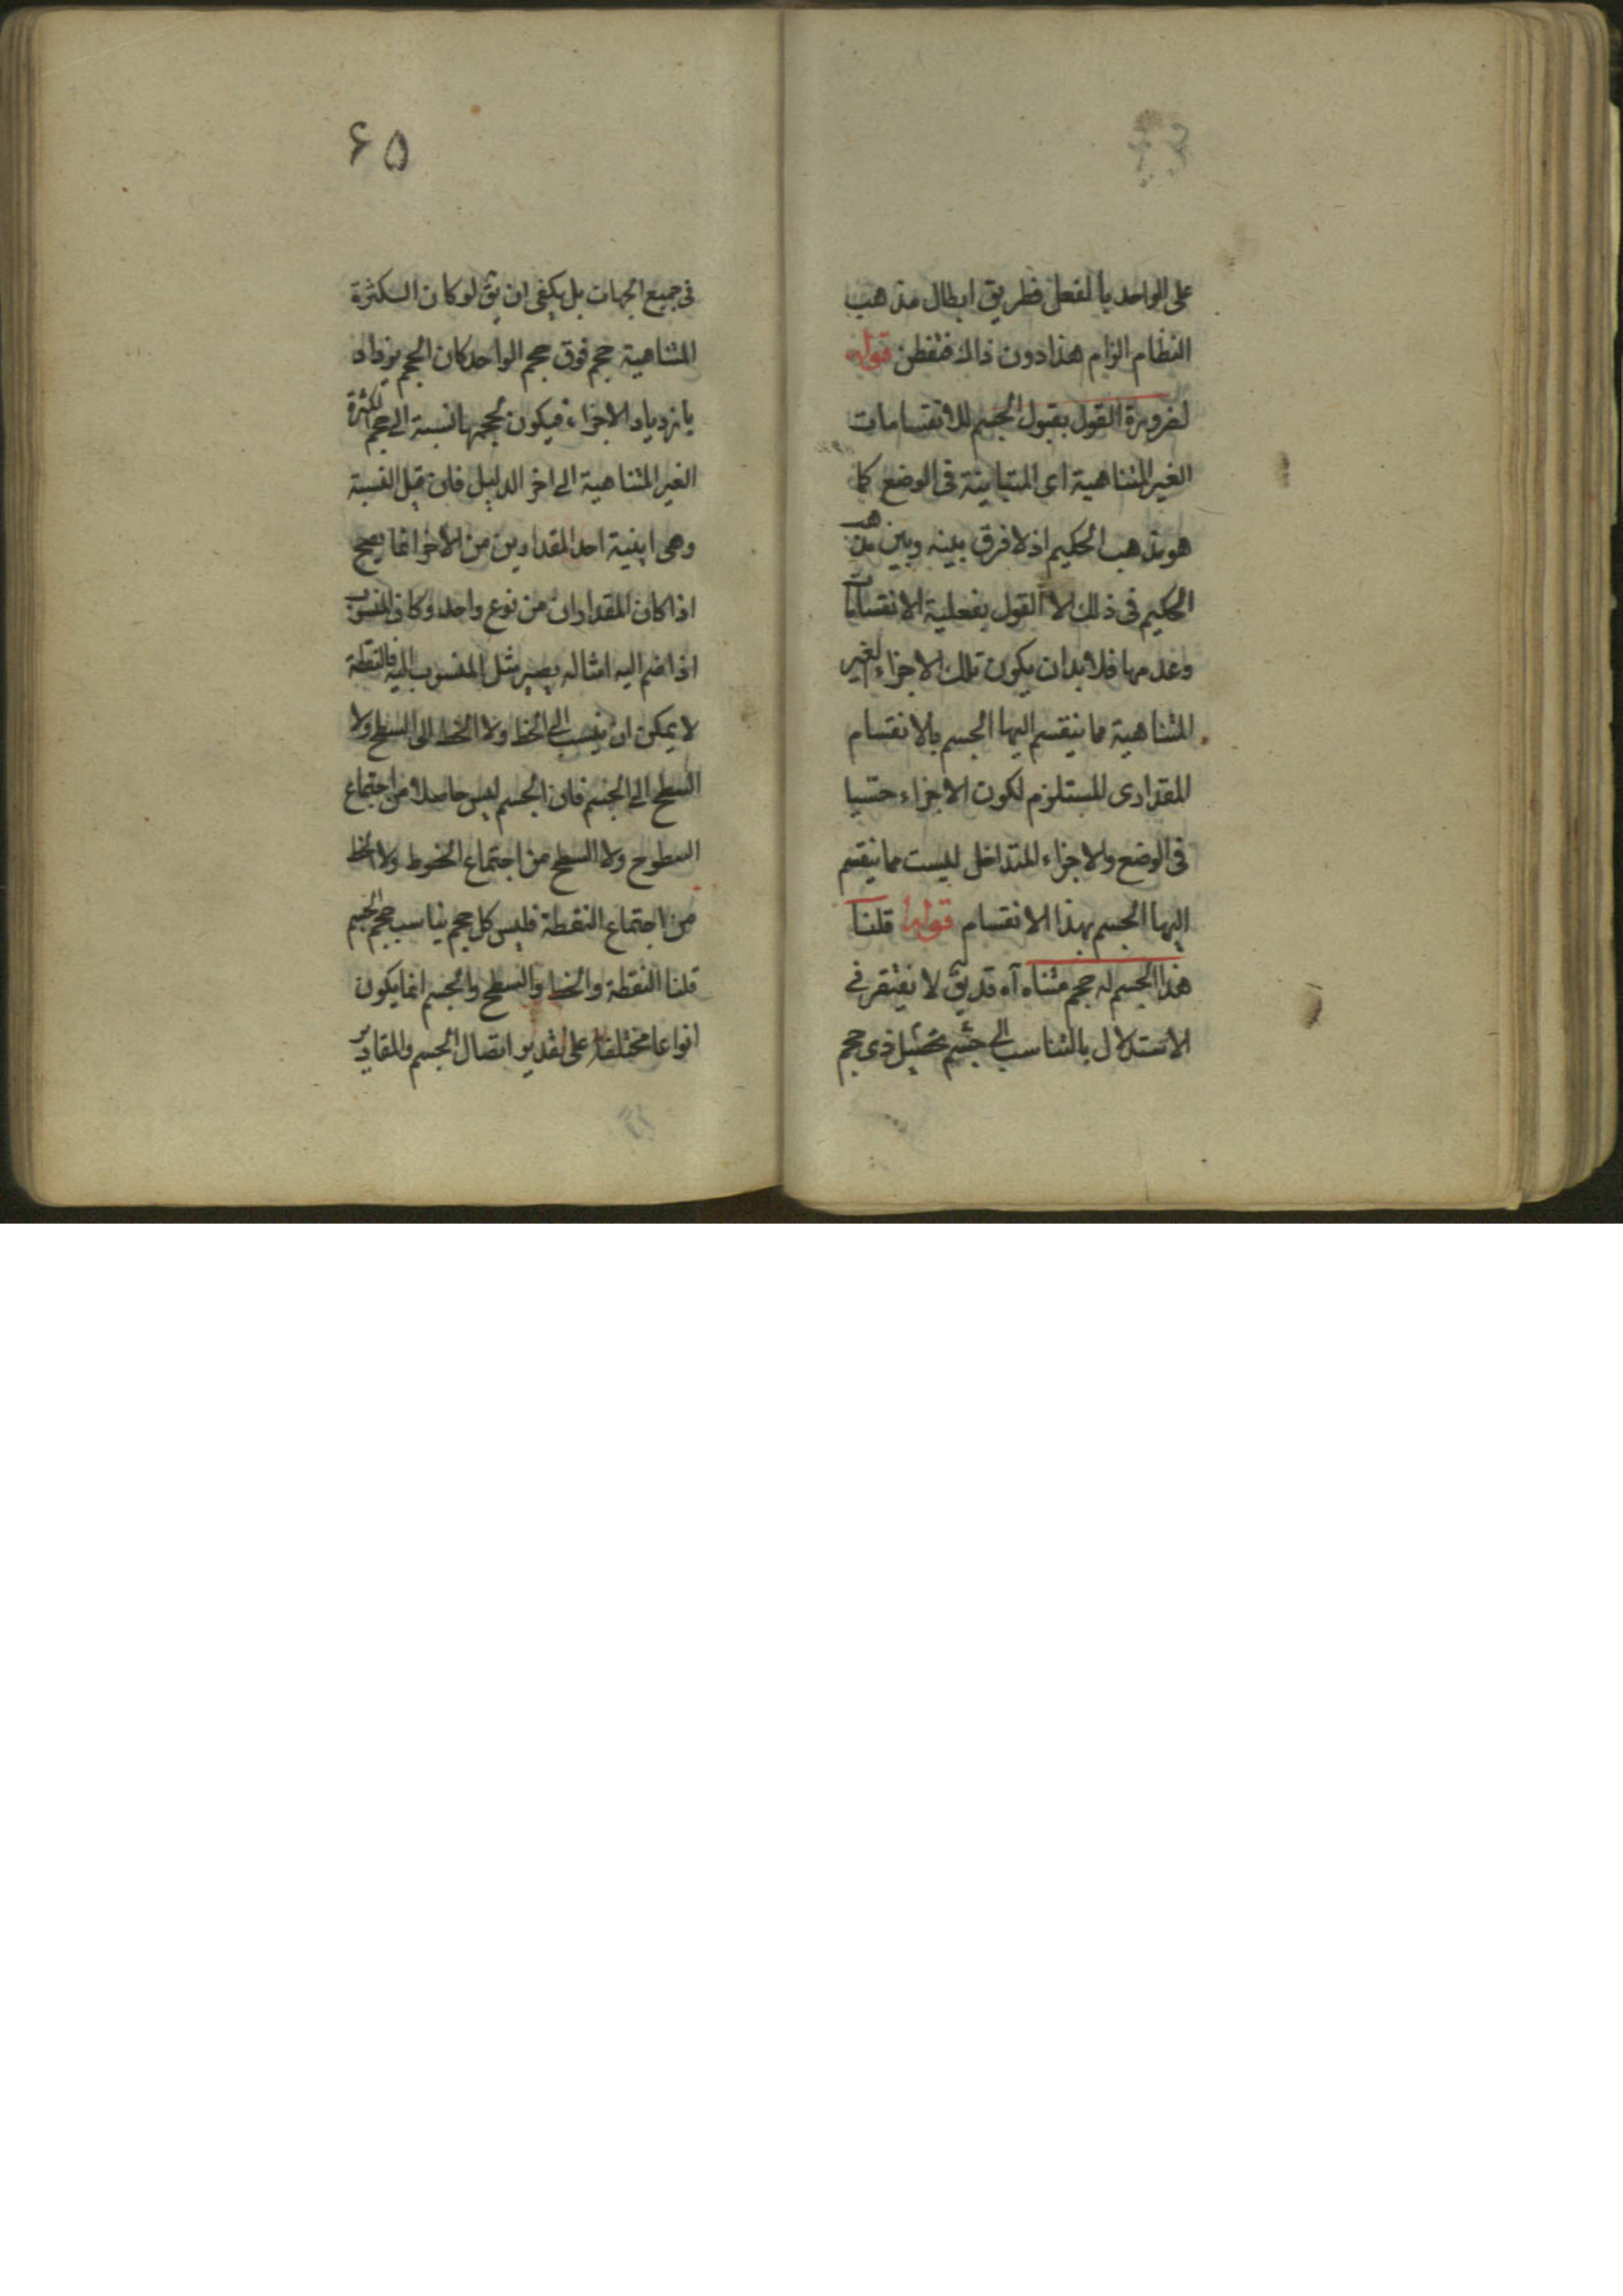 على الواحد بالفعل فطريق ابطال مذهب
النظام الزام هذا دون ذاك فتفطن قوله
لضرورة القول بقبول الجسم للانقسامات
الغير المتناهية اى المتباينة فى الوضع كما
هو مذهب الحكيم اذ لا فرق بينه وبين مذهب
الحكيم فى ذلك الا القول بفعلية الانقسامات
وعدمها فلا بد ان يكون تلك الاجزاء الغير
المتناهية مما ينقسم اليها الجسم بالانقسام
المقدارى المستلزم لكون الاجزاء
فى الوضع والاجزاء المتداخل ليست مما ينقسم
اليها الجسم بهذا الانقسام قوله قلنا
هذا الجسم له حجم متناه آه قد يق لا نفتقر فى
الاستدلال بالتناسب الى جسم ذى حجم
۶۵
فى جميع الجهات بل يكفى ان يق لو كان الكثرة
المتناهية حجم فوق حجم الواحد كان الحجم يزداد
بازدياد الاجزاء فيكون لحجمها نسبة الى حجم الكثرة
الغير المتناهية الى اخر الدليل فان قيل النسبة
وهى ابنية احد المقدارين من الاخر انما يصح
اذا كان المقداران من نوع واحد وكان المنسوب
اذا ضم اليه امثاله يصير مثل المنسوب اليه فالنقطة
لا يمكن ان ينسب الى الخط ولا الخط الى السطح ولا
السطح الى الجسم فان الجسم ليس حاصلا من اجتماع
السطوح ولا السطح من اجتماع الخطوط ولا الخط
من اجتماع النقطة فليس كل حجم يناسب حجم الجسم
قلنا النقطة والخط والسطح والجسم انما يكون
انواعا مختلفة على تقدير اتصال الجسم والمقادير